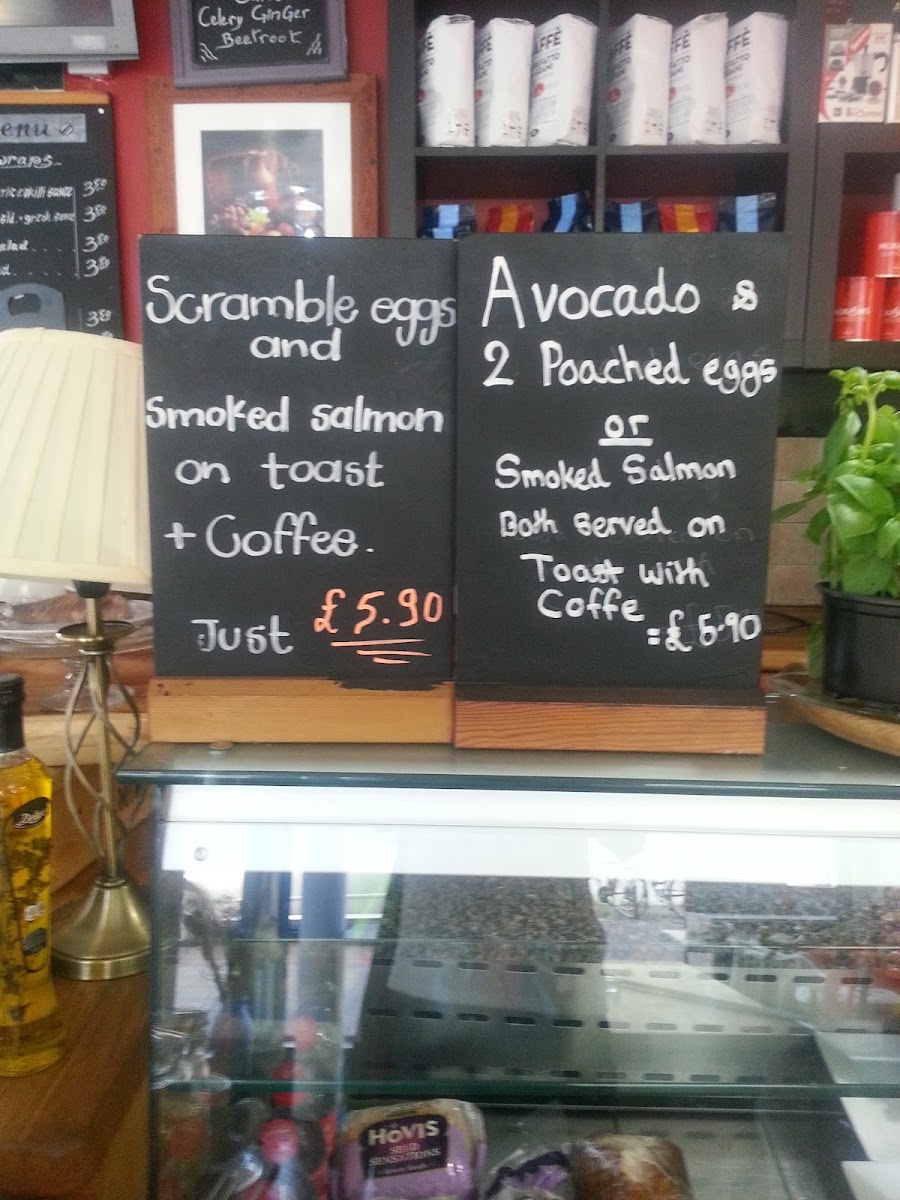 Celery Ginger
Beetroot
enu
wraps
3.80
3.50
3.80
3.80
3.80
Scramble eggs
and
Smoked salmon
on toast
+ Coffee.
Just £5.90
Avocado &
2 Poached eggs
or
Smoked Salmon
Both Served on
Toast with
Coffe
=£5.90
HOVIS
SEED
SENSATIONS